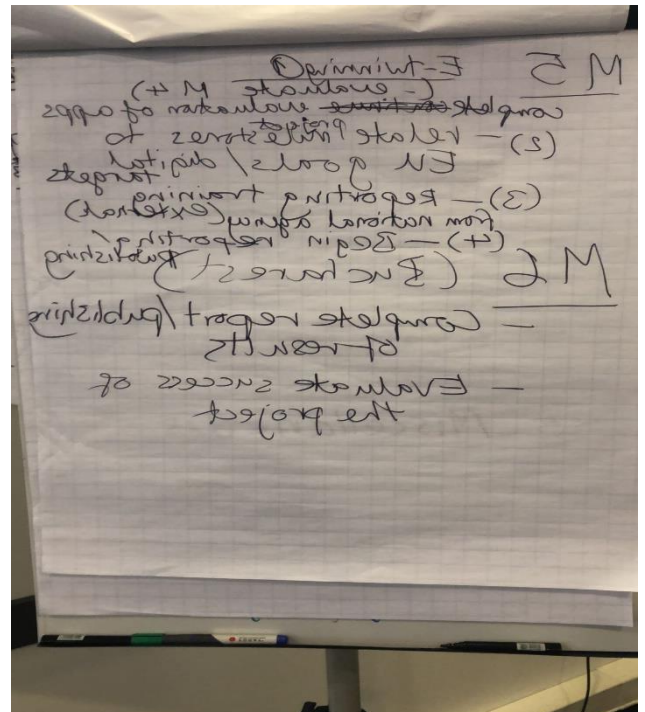 M5 E-twinning ①
(- evaluate M4)
complete continue evaluation of apps
project
(2) - relate milestones to
EU goals / digital
targets
(3) - Reporting training
from national agency (external)
(4) - Begin reporting /
publishing
M6 (Bucharest)
- Complete report / publishing
of results
- Evaluate success of
the project